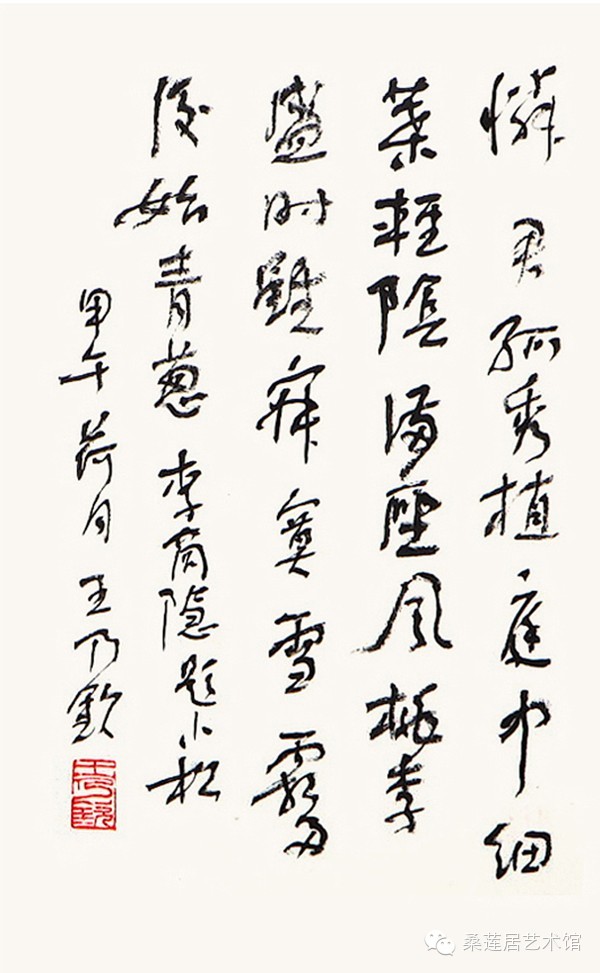 憐君孤秀植庭中細
葉輕陰滿座風桃李
盛时雖寂寞雪霜多
後始青葱李商隐題小松
甲午荷月王乃欽
桑莲居艺术馆